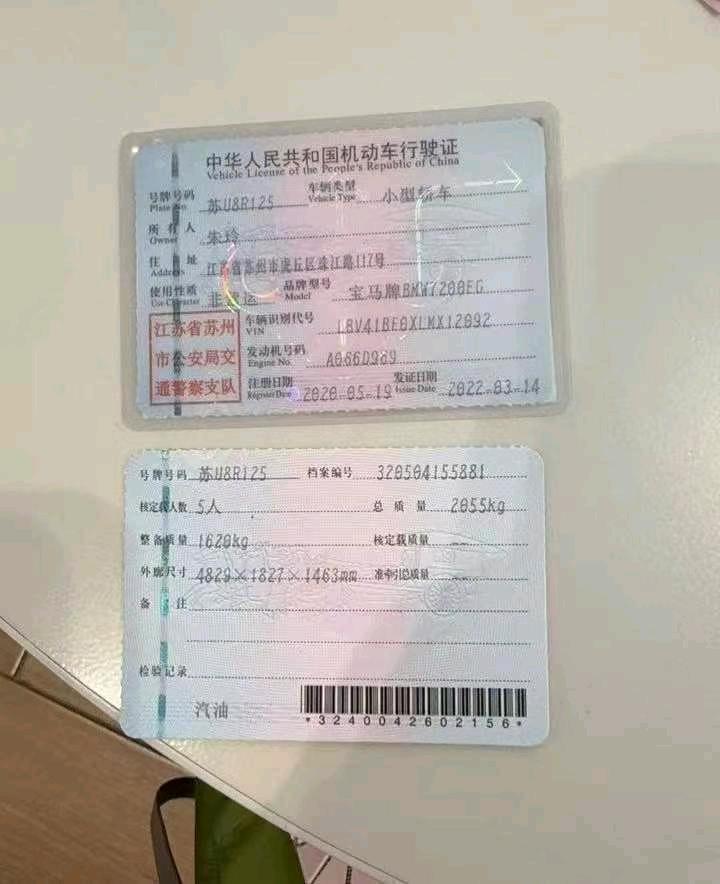 中华人民共和国机动车行驶证
Vehicle License of the People's Republic of China
号牌号码 苏U8R125 车辆类型 小型轿车
Plate No. Vehicle Type
所有人 朱玲
Owner
住址 江苏省苏州市虎丘区珠江路117号
Address
使用性质 非营运 品牌型号 宝马牌BMW7200EG
Use Character Model
江苏省苏州
市公安局交
通警察支队
车辆识别代号 LBV41BF0XLMX12092
VIN
发动机号码 A066D989
Engine No.
注册日期 2020-05-19 发证日期 2022-03-14
Register Date Issue Date
号牌号码 苏U8R125 档案编号 320504155881
核定载人数 5人 总质量 2055kg
整备质量 1620kg 核定载质量 --
外廓尺寸 4829×1827×1463mm 准牵引总质量 --
备注
检验记录
汽油
*3240042602156*